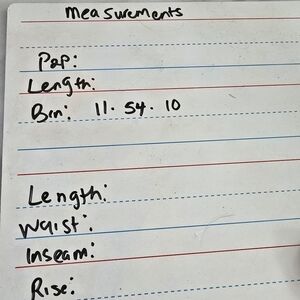 Measurements
Pap:
Length:
Bin: 11. 54. 10
Length:
Waist:
Inseam:
Rise: